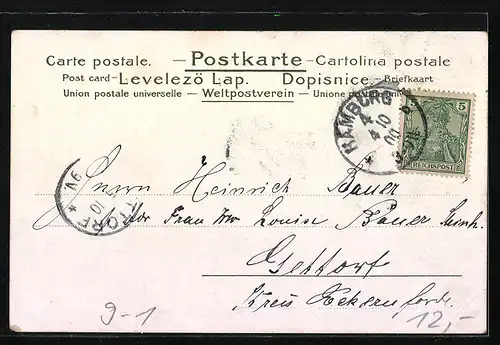 Carte postale. — Postkarte — Cartolina postale
Post card — Levelezö Lap. Dopisnice — Briefkaart
Union postale universelle — Weltpostverein — Unione postale
HAMBURG
4 10 00
5
REICHSPOST
TORF
10
Herrn Heinrich Bauer
Frau Louise Bauer
Gettorf
Kreis Eckernförde.
9-1
12,-